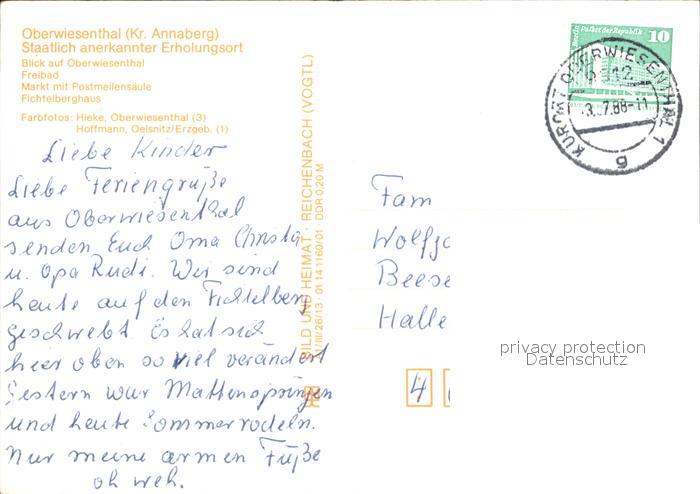 Oberwiesenthal (Kr. Annaberg)
Staatlich anerkannter Erholungsort
Blick auf Oberwiesenthal
Freibad
Markt mit Postmeilensäule
Fichtelberghaus
Farbfotos: Hieke, Oberwiesenthal (3)
Hoffmann, Oelsnitz/Erzgeb. (1)
Liebe Kinder
Liebe Feriengrüße
aus Oberwiesenthal
senden Euch Oma Christa
u. Opa Rudi. Wir sind
heute auf den Fichtelberg
geschwebt. Es hat sich
hier oben so viel verändert
Gestern war Mattenspringen
und heute Sommerrodeln.
Nur meine armen Füße
oh weh.
BILD UND HEIMAT · REICHENBACH (VOGTL)
III/26/13 · 01 14 1160/01 · DDR 0,20 M
Berlin Palast der Republik 10
KURORT OBERWIESENTHAL 1
9312
3.07.88-11
g
Fam
Wolfg
Beese
Halle
4
privacy protection
Datenschutz